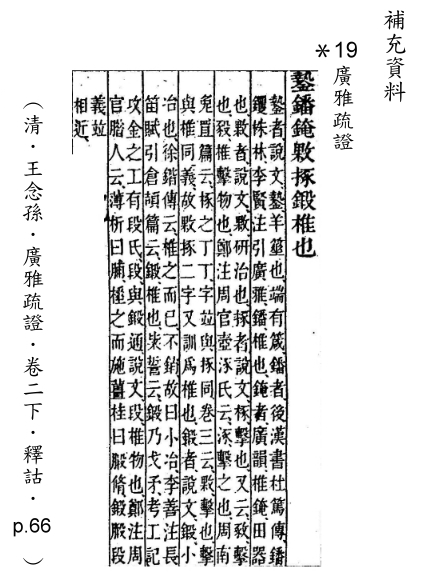 補充資料
＊19
廣雅疏證
䥍鐇䤶敤椓鍛椎也
䥍者說文䥍羊箠也端有鐵鐇者後漢書杜篤傳鐇
钁株林李賢注引廣雅鐇椎也䤶者廣韻椎䤶田器
也敤者說文敤研治也椓者說文椓擊也又云㪣擊
也豛椎擊物也鄭注周官壺涿氏云涿擊之也周南
兔罝篇云椓之丁丁字竝與椓同卷三云敤擊也擊
與椎同義故敤椓二字又訓爲椎也鍛者說文鍛小
冶也徐鍇傳云椎之而已不銷故曰小冶李善注長
笛賦引倉頡篇云鍛椎也粊誓云鍛乃戈矛考工記
攻金之工有段氏段與鍛通說文段椎物也鄭注周
官腊人云薄析曰脯棰之而施薑桂曰腶脩鍛腶段
義竝
相近
（清．王念孫．廣雅疏證．卷二下．釋詁．p.66）